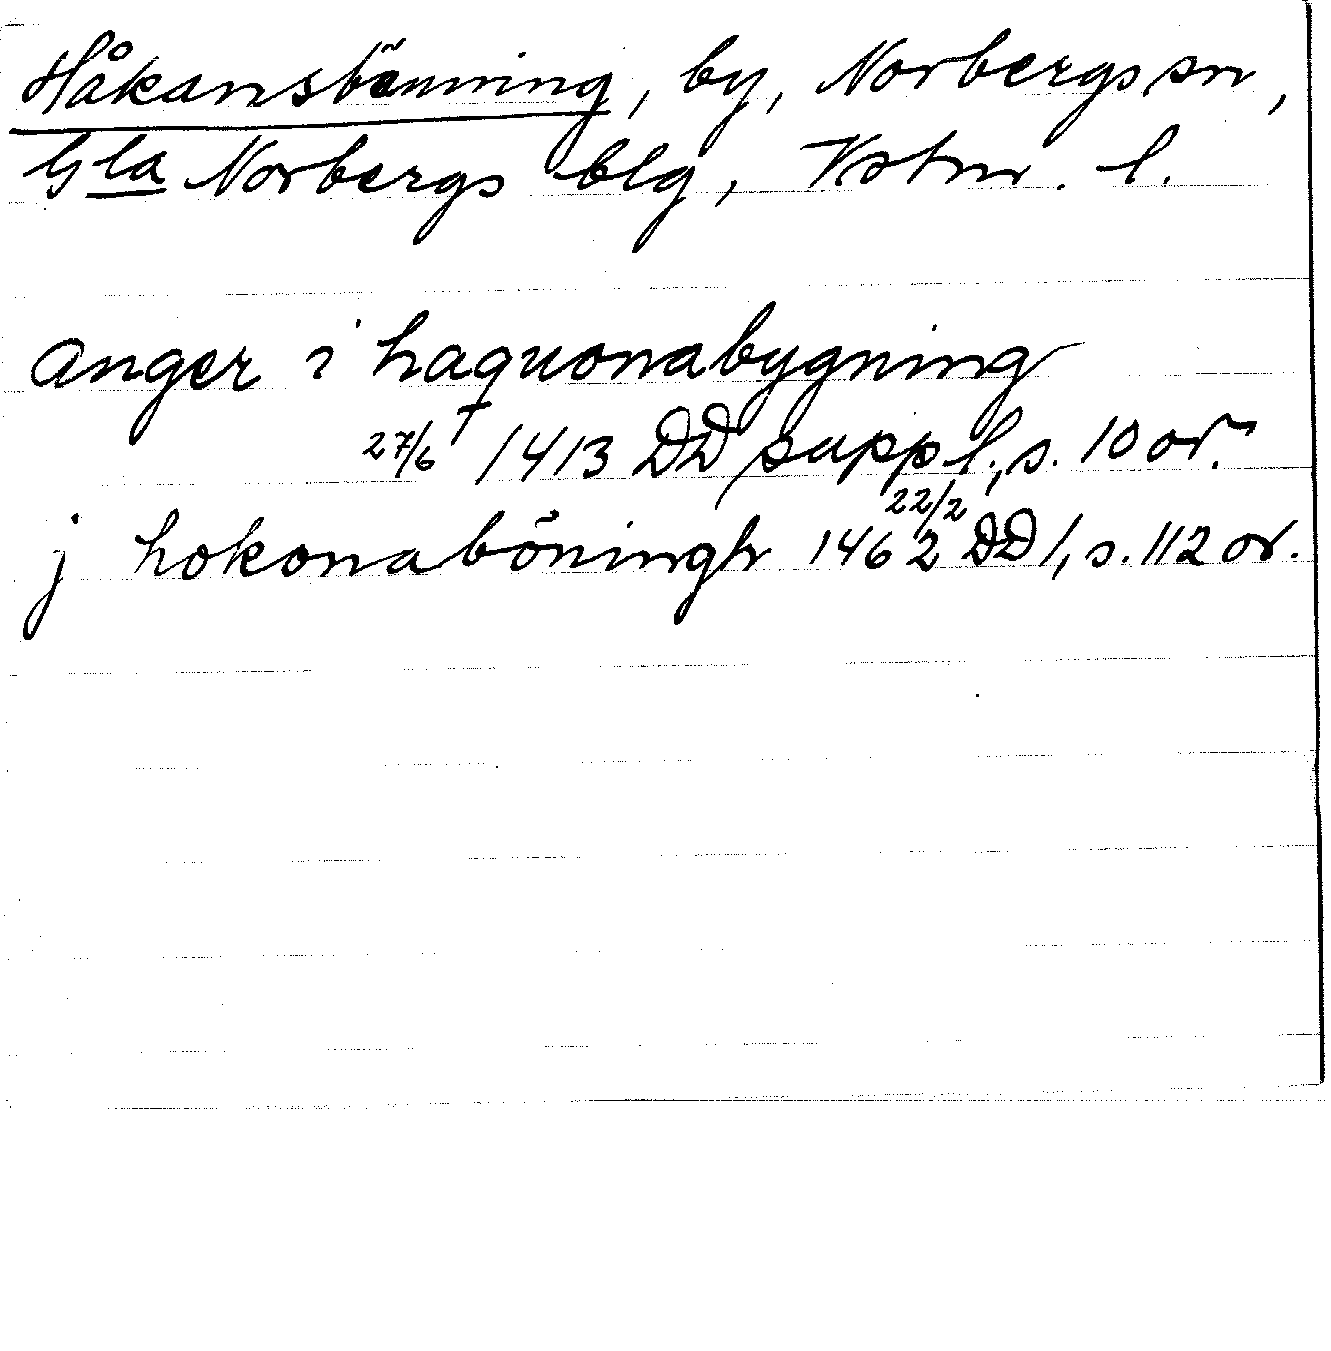 Håkansbenning, by, Norbergs sn,
Gla Norbergs blg, Vstm. l.
Anger i haquonabygning
27/6 1413 DD suppl., s. 10 or.
j hokonaböningh 22/2 1462 DD 1, s. 112 or.